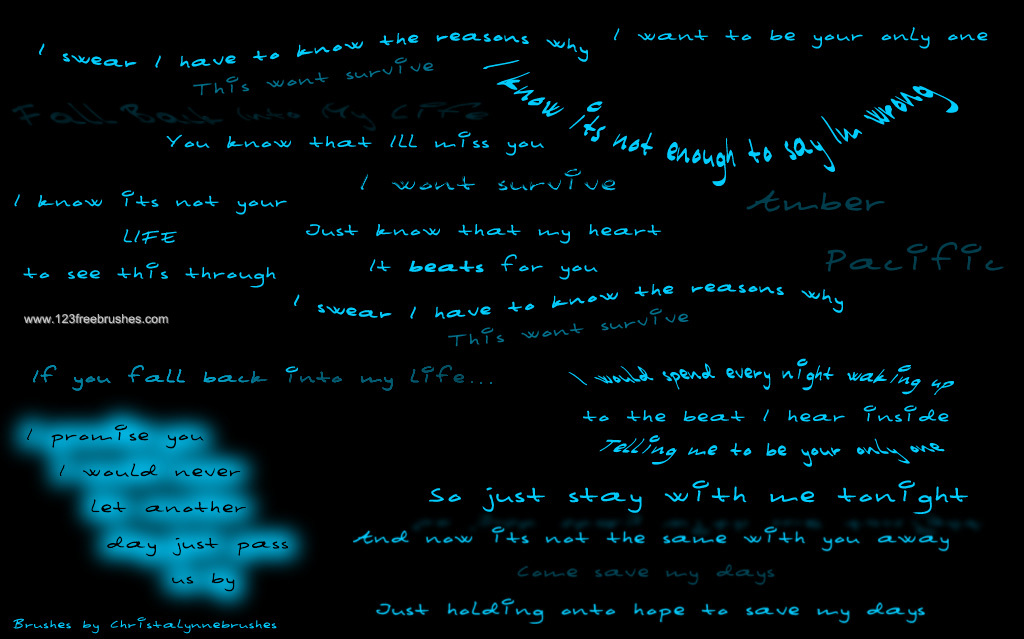 I swear I have to know the reasons why
This wont survive
I want to be your only one
I know its not enough to say Im wrong
Fall Back Into My Life
You know that Ill miss you
I wont survive
I know its not your
LIFE
to see this through
Amber
Pacific
Just know that my heart
It beats for you
I swear I have to know the reasons why
This wont survive
www.123freebrushes.com
If you fall back into my life...
I would spend every night waking up
to the beat I hear inside
Telling me to be your only one
I promise you
I would never
let another
day just pass
us by
So just stay with me tonight
And now its not the same with you away
Come save my days
Just holding onto hope to save my days
Brushes by Christalynnebrushes